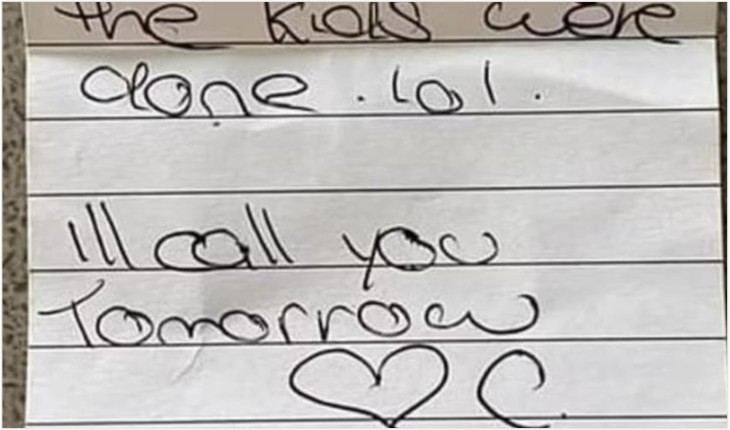 the kids were
done. lol.
Ill call you
Tomorrow
♡ C.